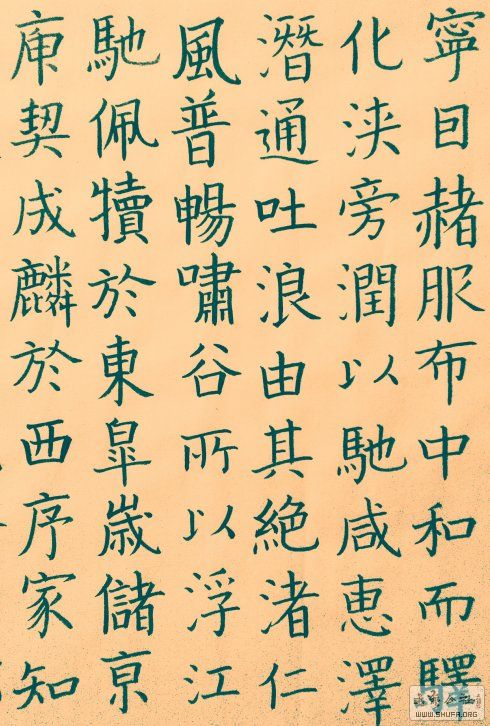 寧曰赭服布中和而驛
化浹旁潤以馳咸恵澤
潛通吐浪由其絕渚仁
風普暢嘯谷所以浮江
馳佩犢於東皐歲儲亰
庾契成麟於西序家知
WWW.SHUFA.ORG